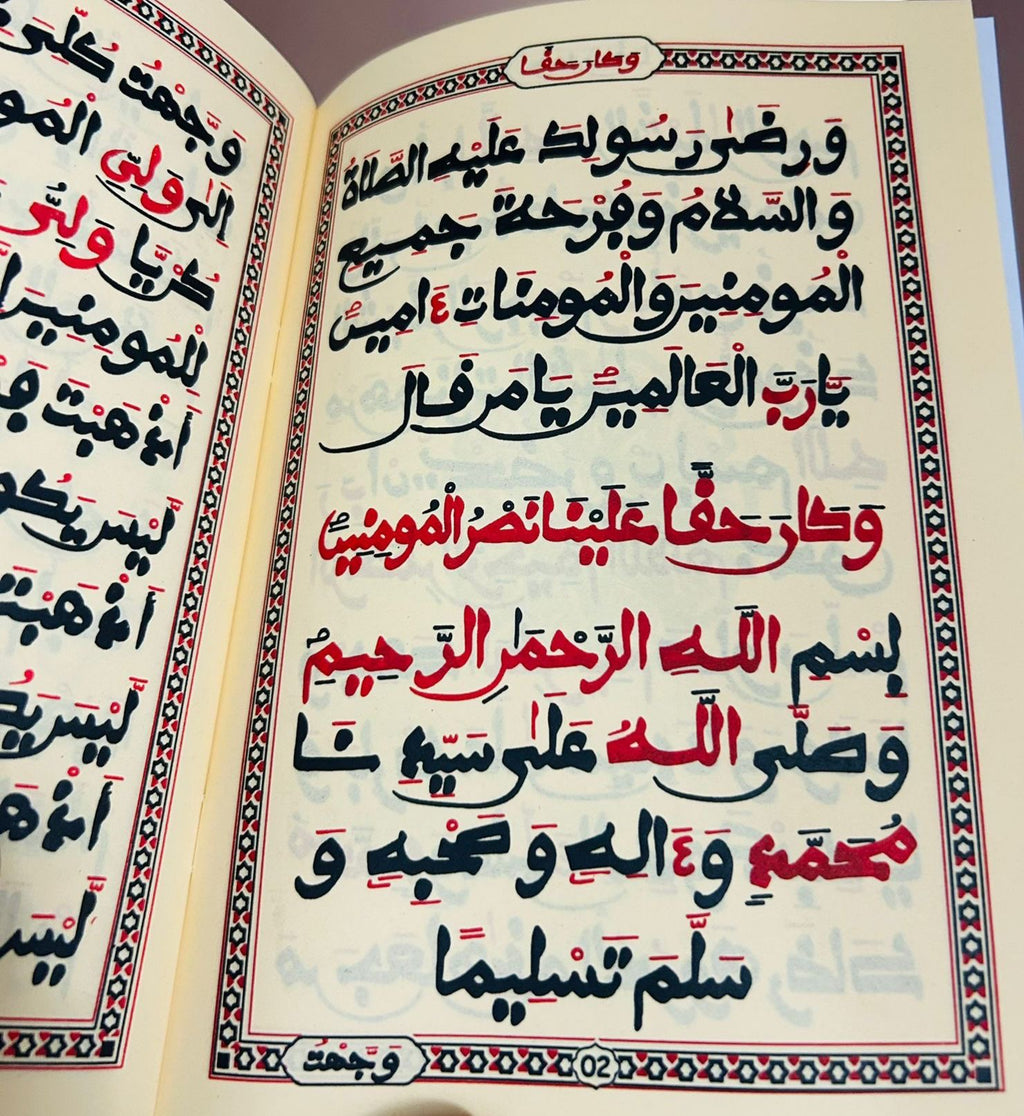 وَكَانَ حَقًّا
وَرِضَى رَسُولِكَ عَلَيْهِ الصَّلَاةُ
وَالسَّلَامُ وَفُرْحَةَ جَمِيعِ
الْمُومِنِينَ وَالْمُومِنَاتِ ءَامِينْ
يَا رَبَّ الْعَالَمِينْ يَا مَن قَالَ
وَكَانَ حَقًّا عَلَيْنَا نَصْرُ الْمُومِنِينْ
بِسْمِ اللَّهِ الرَّحْمَنِ الرَّحِيمِ
وَصَلَّى اللَّهُ عَلَى سَيِّدِنَا
مُحَمَّدٍ وَءَالِهِ وَصَحْبِهِ وَ
سَلَّمَ تَسْلِيمًا
وَجَّهْتُ
02
وَجَّهْتُ كُلِّي
إِلَى وَلِيِّ
كُنْ يَا وَلِيُّ
لِلْمُومِنِينَ
لَيْسَ
لَيْسَ
لَيْسَ